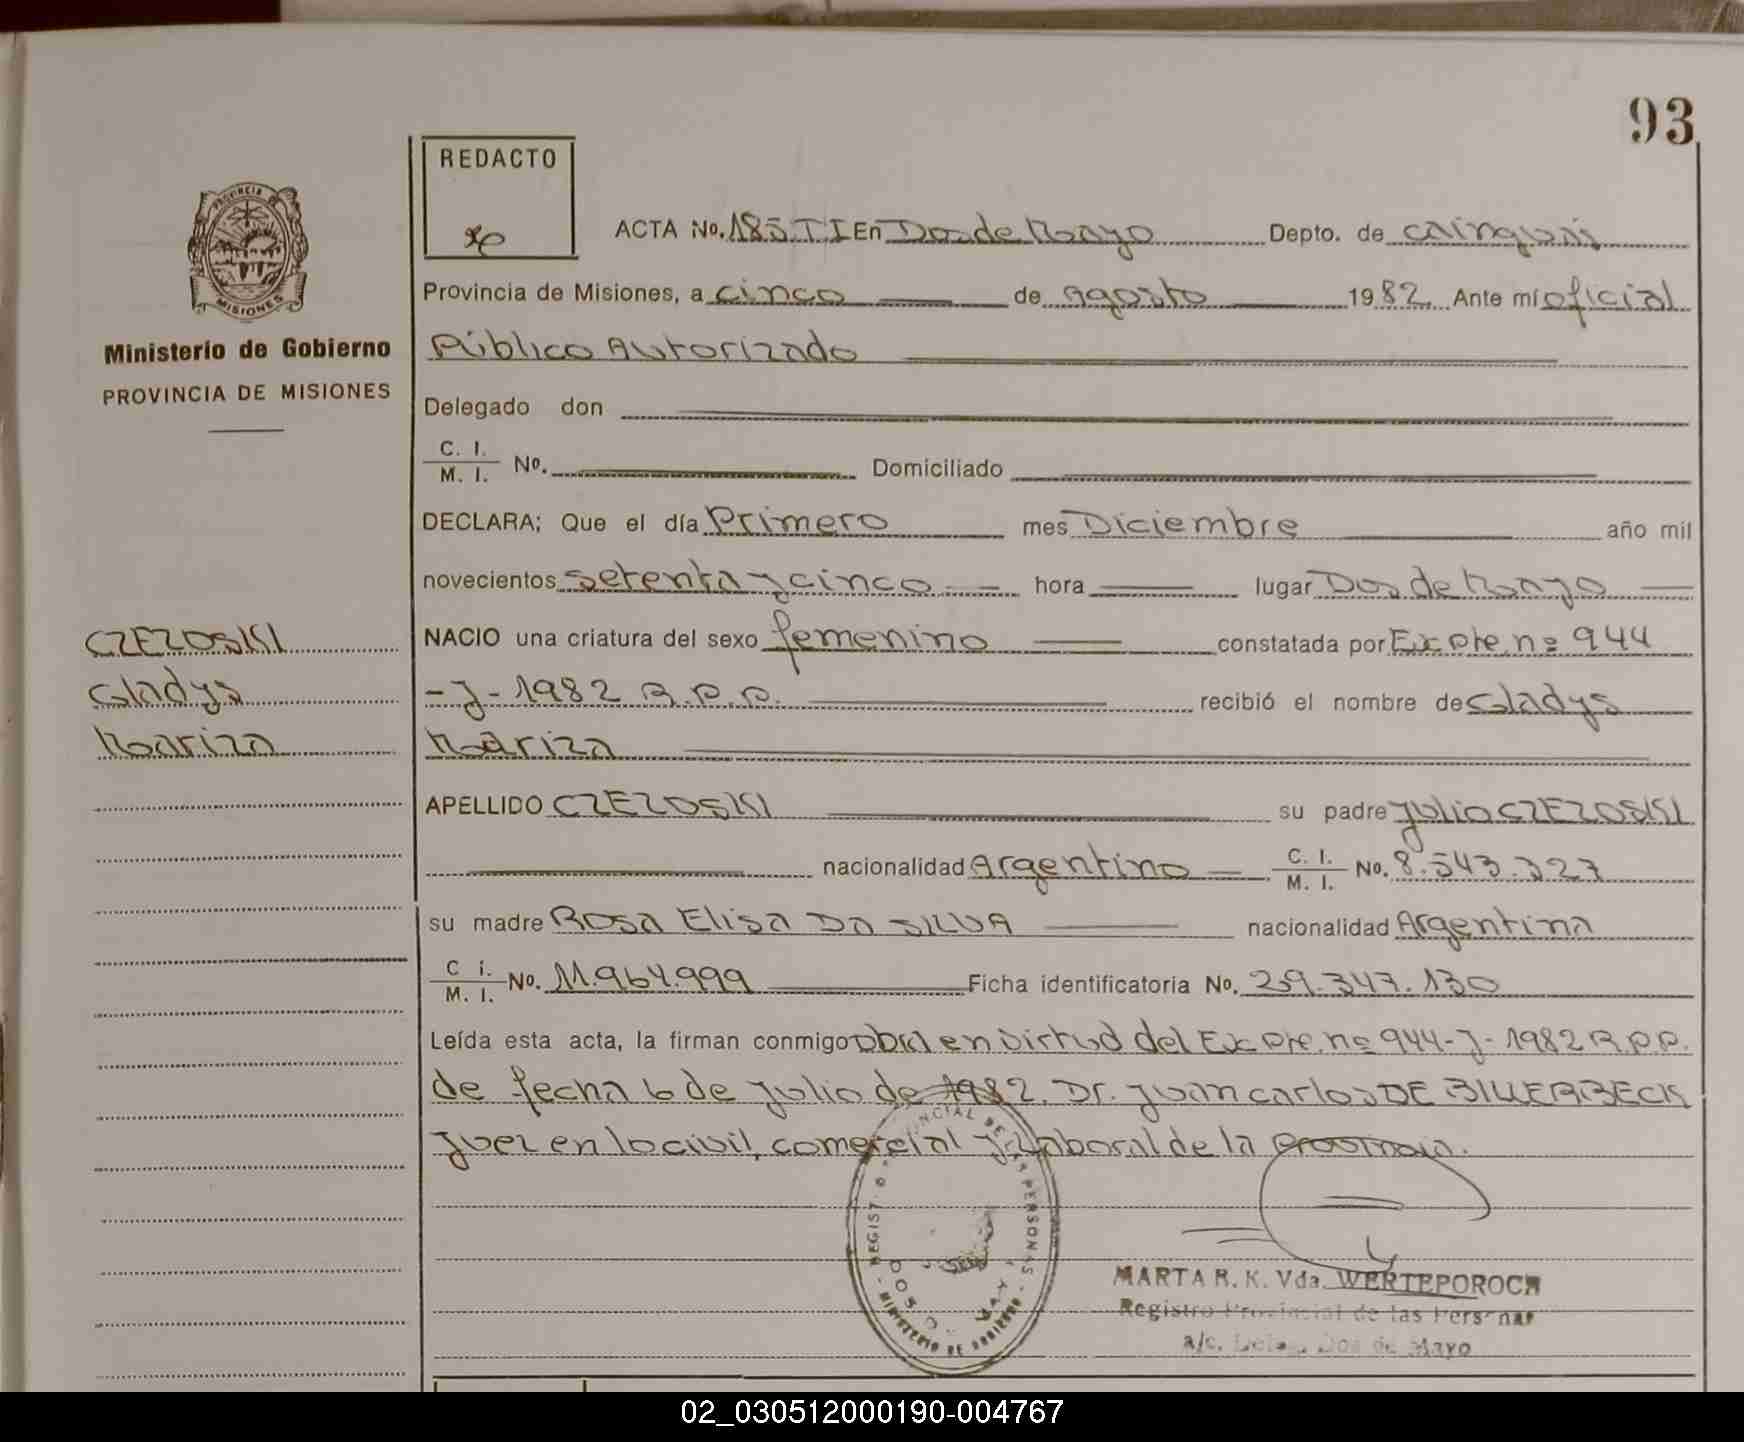 93
REDACTO
ACTA No. 185 TI En Dos de Mayo Depto. de Cainguás
PROVINCIA DE
MISIONES
Provincia de Misiones, a cinco de Agosto 1982 Ante mí oficial
Ministerio de Gobierno
Público Autorizado
PROVINCIA DE MISIONES
Delegado don
C. I.
M. I. No. Domiciliado
DECLARA; Que el día Primero mes Diciembre año mil
novecientos setenta y cinco hora lugar Dos de Mayo
CZEZOSKI
NACIO una criatura del sexo femenino constatada por Expte. nº 944
Gladys
-J-1982 R.P.P. recibió el nombre de Gladys
Mariza
Mariza
APELLIDO CZEZOSKI su padre Julio CZEZOSKI
nacionalidad Argentino C. I. M. I. No. 8.543.327
su madre ROSA Elisa DA SILVA nacionalidad Argentina
C i. M. I. No. 11.964.999 Ficha identificatoria No. 259.347.130
Leída esta acta, la firman conmigo en virtud del Expte. nº 944-J-1982 R.P.P.
de fecha 6 de Julio de 1982. Dr. Juan Carlos DE BILLERBECK
Juez en lo civil, comercial y Laboral de la Provincia.
MARTA R. K. Vda. WERTEPOROCH
Registro Provincial de las Personas
a/c. Deleg. Dos de Mayo
02_030512000190-004767